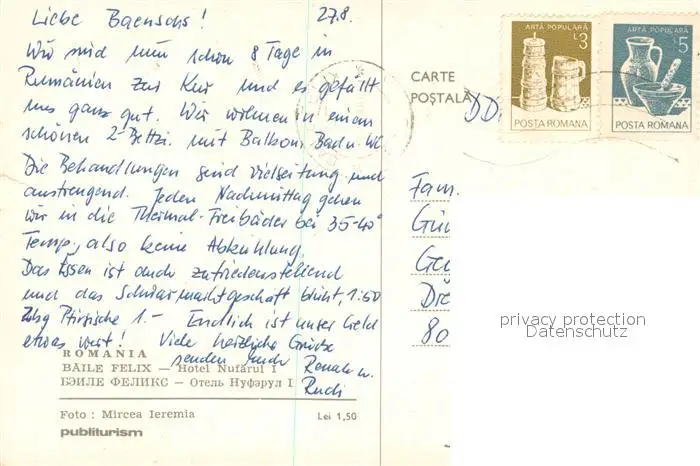 Liebe Baenschs! 27.8.
Wir sind nun schon 8 Tage in
Rumänien zur Kur und es gefällt
uns ganz gut. Wir wohnen in einem
schönen 2-Bettzi. mit Balkon, Bad u. WC.
Die Behandlungen sind vielseitung und
anstrengend. Jeden Nachmittag gehen
wir in die Thermal-Freibäder bei 35-40°
Temp, also keine Abkühlung.
Das Essen ist auch zufriedenstellend
und das Schwarzmarktgeschäft blüht, 1:50
Pfirsiche 1.- Endlich ist unser Geld
etwas wert! Viele herzliche Grüße
senden Euch Renate u.
Rudi
ROMANIA
BĂILE FELIX — Hotel Nufărul I
БЭИЛЕ ФЕЛИКС — Отель Нуфэрул I
Foto : Mircea Ieremia Lei 1,50
publiturism
CARTE
POŞTALĂ
DD
ARTĂ POPULARĂ
L3
POSTA ROMANA
ARTĂ POPULARĂ
L5
POSTA ROMANA
Fam.
80
privacy protection
Datenschutz